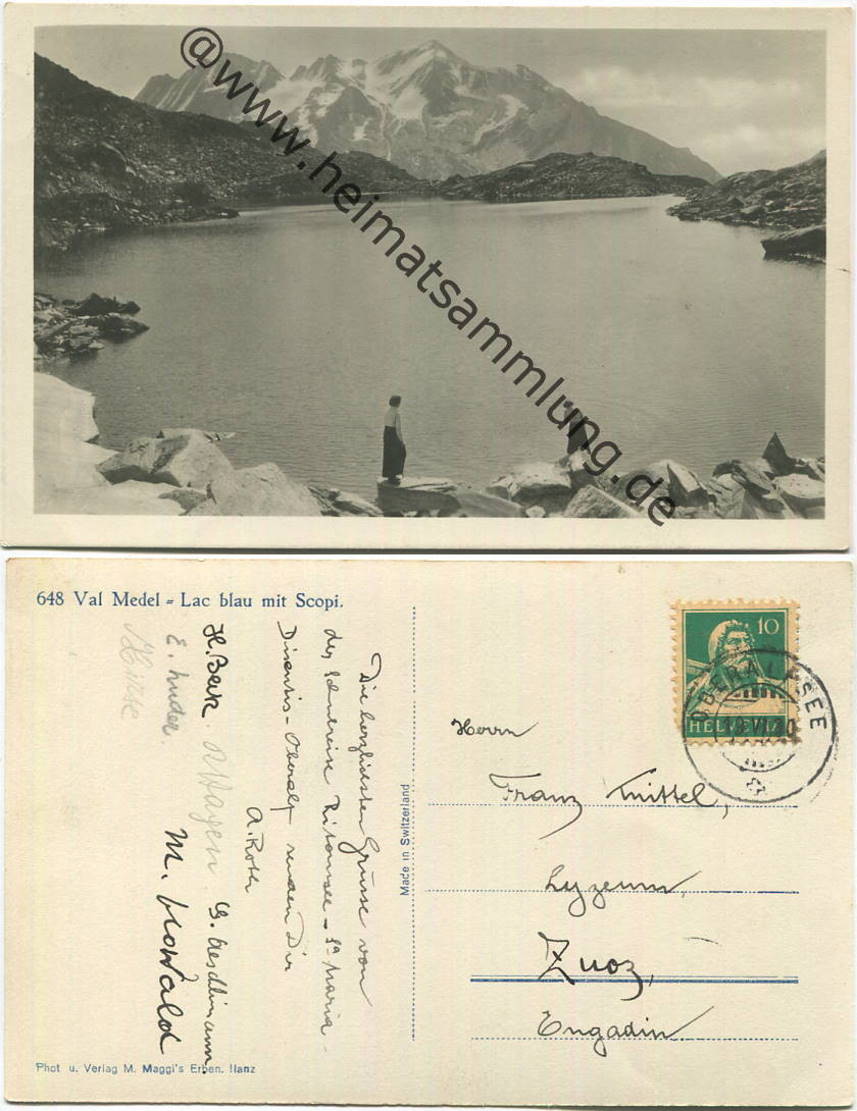 @www.heimatsammlung.de
648 Val Medel = Lac blau mit Scopi.
Die herzlichsten Grüsse von
der Schulreise Ritomsee - Sta Maria -
Disentis - Oberalp senden Dir
A. Roth
H. Beck. Hagen. G. Aeschlimann,
E. Huder. M. Howald
Made in Switzerland
10
HELVETIA
OBERALPSEE
Herrn
Franz Knittel,
Lyzeum,
Zuoz,
Engadin
Phot u. Verlag M. Maggi's Erben. Ilanz